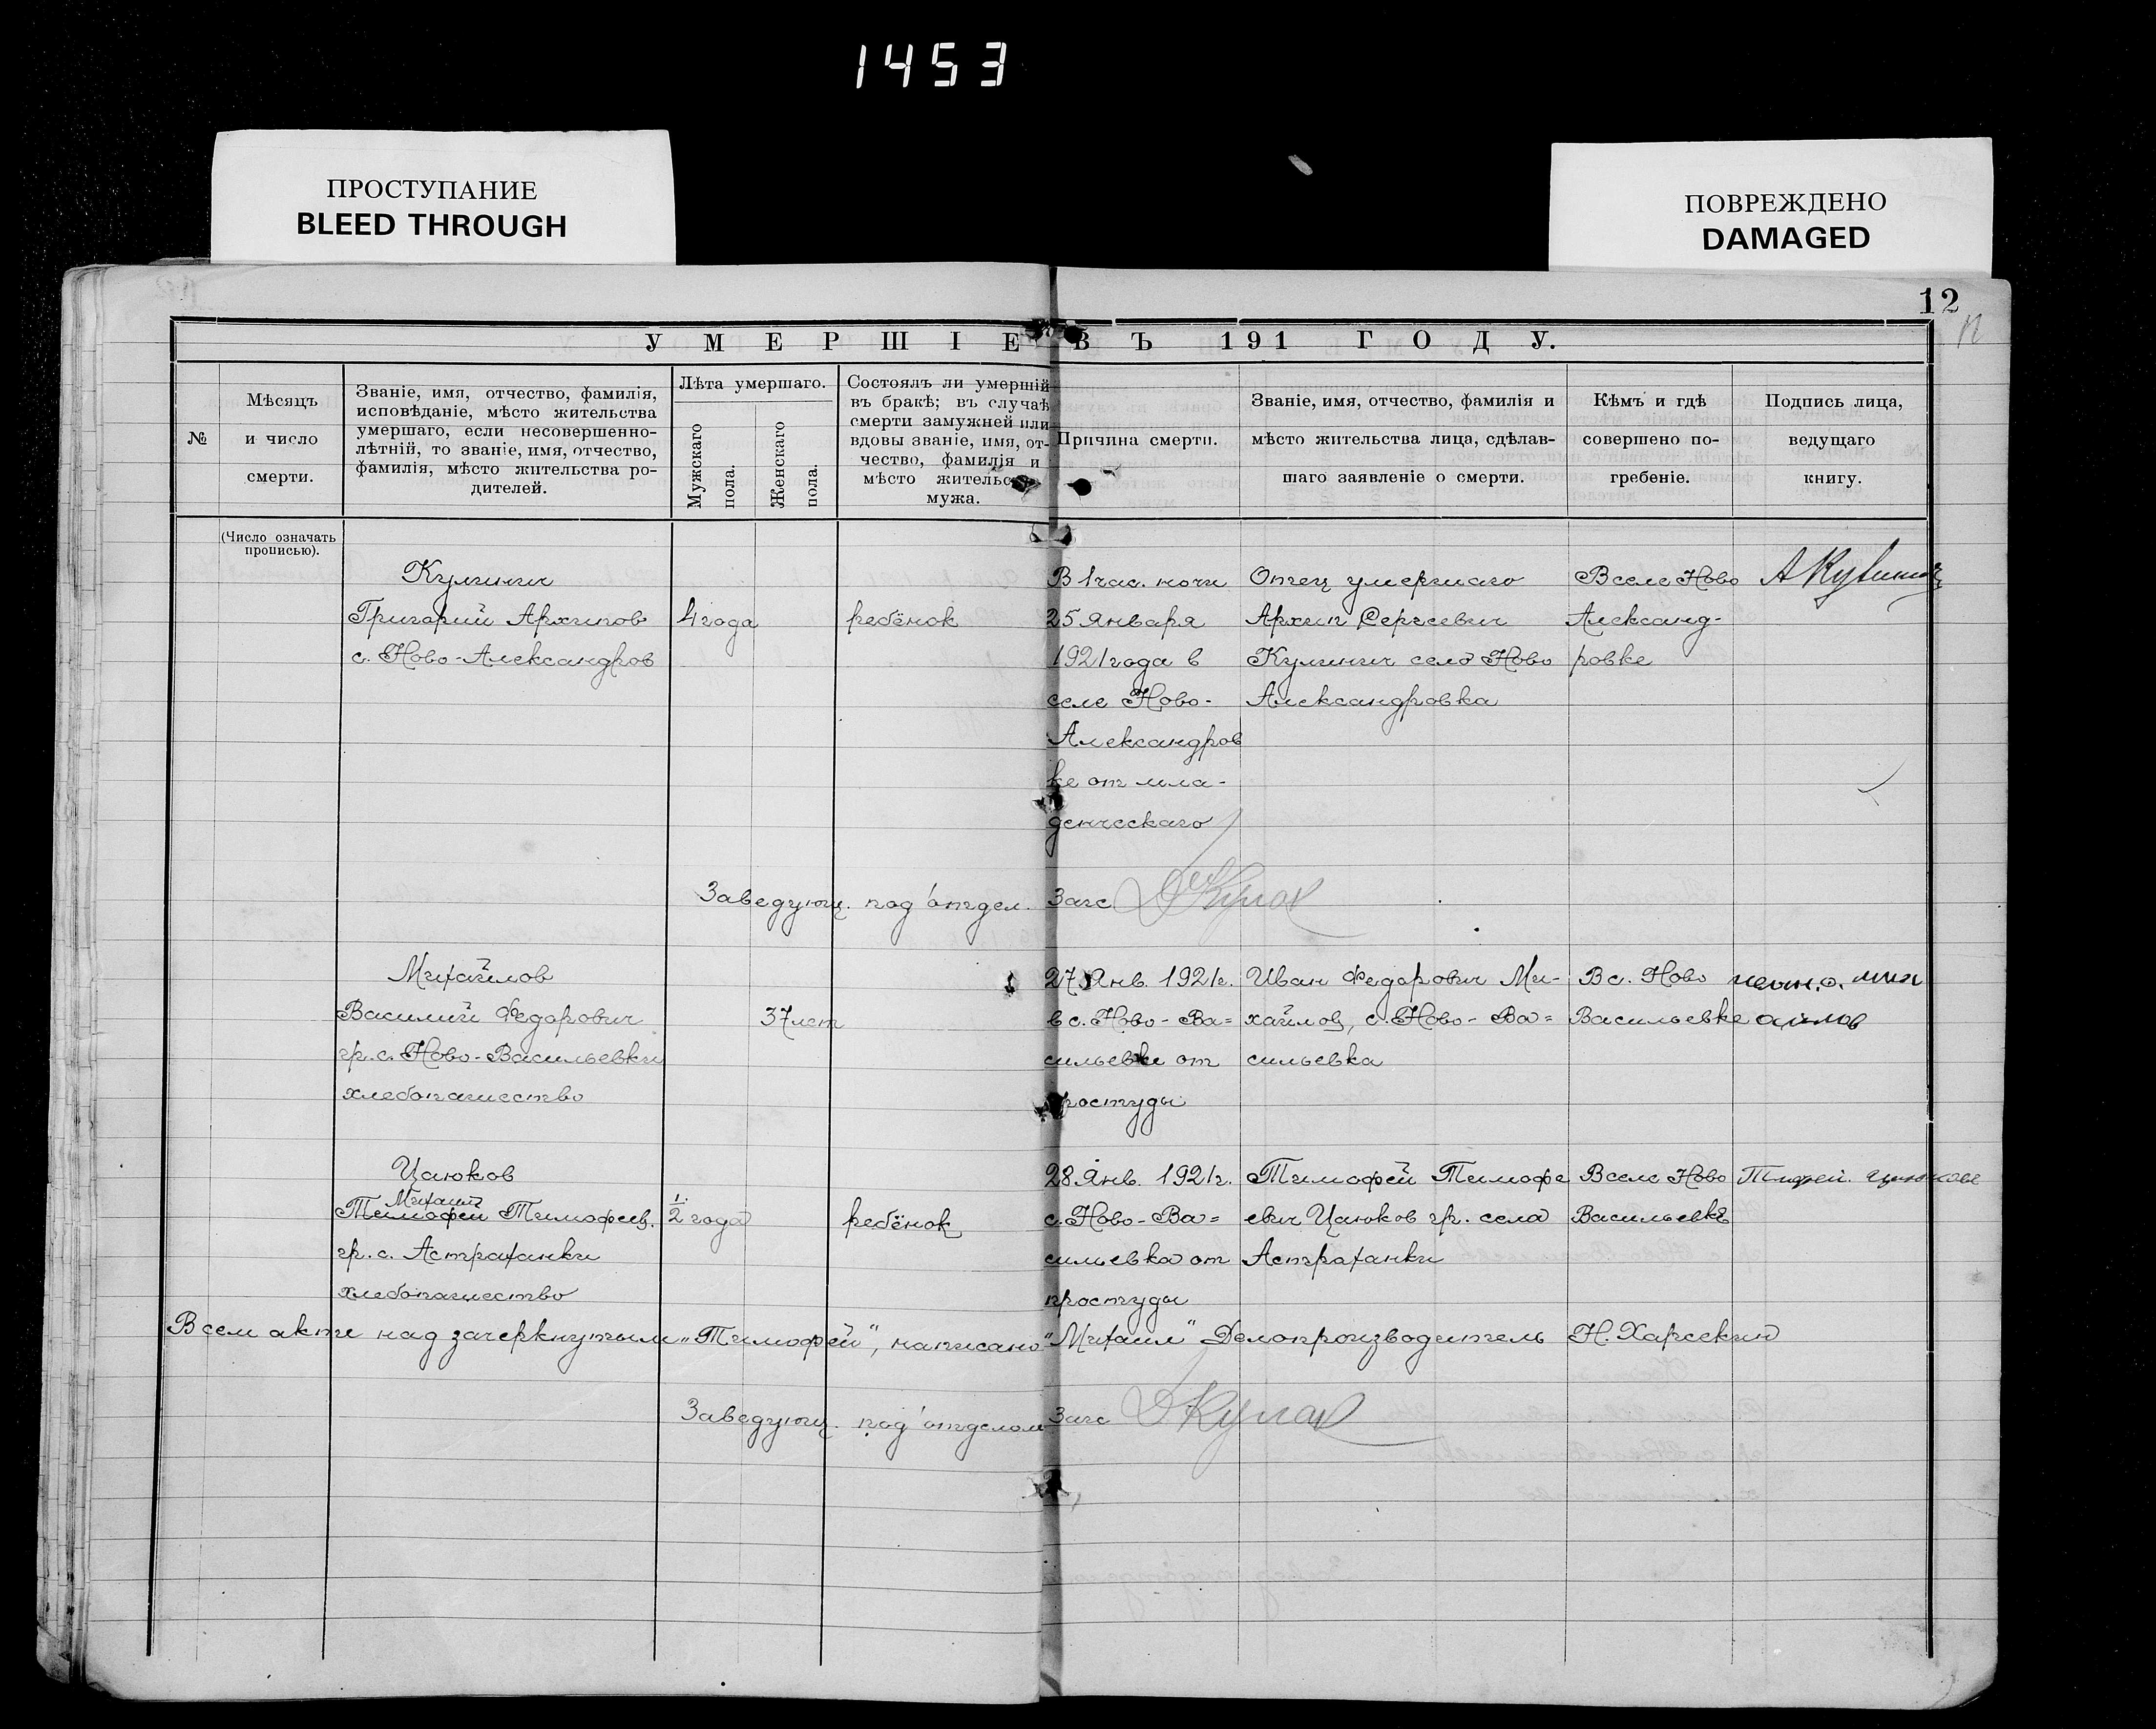 1453
ПРОСТУПАНИЕ
BLEED THROUGH
ПОВРЕЖДЕНО
DAMAGED
12
12
УМЕРШІЕ ВЪ 191 ГОДУ.
№
Мѣсяцъ
и число
смерти.
Званіе, имя, отчество, фамилія,
исповѣданіе, мѣсто жительства
умершаго, если несовершенно-
лѣтній, то званіе, имя, отчество,
фамилія, мѣсто жительства ро-
дителей.
Лѣта умершаго.
Мужскаго
пола.
Женскаго
пола.
Состоялъ ли умершій
въ бракѣ; въ случаѣ
смерти замужней или
вдовы званіе, имя, от-
чество, фамилія и
мѣсто жительства
мужа.
Причина смерти.
Званіе, имя, отчество, фамилія и
мѣсто жительства лица, сдѣлав-
шаго заявленіе о смерти.
Кѣмъ и гдѣ
совершено по-
гребеніе.
Подпись лица,
ведущаго
книгу.
(Число означать
прописью).
Кулинич
Григорий Архипов
с. Ново-Александров
4 года
ребёнок
В 1 час. ночи
25 Января
1921 года в
селе Ново-
Александров
ке от мла-
денческаго
Отец умершаго
Архип Сергеевич
Кулинич село Ново
Александровка
В селе Ново
Александ-
ровке
Заведующ. под'отдел. Загс
Михайлов
Василий Федорович
гр. с. Ново-Васильевки
хлебопашество
37 лет
27 Янв. 1921г.
в с. Ново-Ва=
сильевке от
простуды
Иван Федорович Ми-
хайлов, с. Ново-Ва=
сильевка
В с. Ново
Васильевке
Цаюков
Михаил
Тимофей Тимофеев.
гр. с. Астраханки
хлебопашество
1/2 года
ребёнок
28 Янв. 1921г.
с. Ново-Ва=
сильевка от
простуды
Тимофей Тимофе
евич Цаюков гр. села
Астраханки
В селе Ново
Васильевке
В сем акте над зачеркнутым „Тимофей", написано "Михаил" Делопроизводитель Н. Харсекин
Заведующ. под'отделом Загс